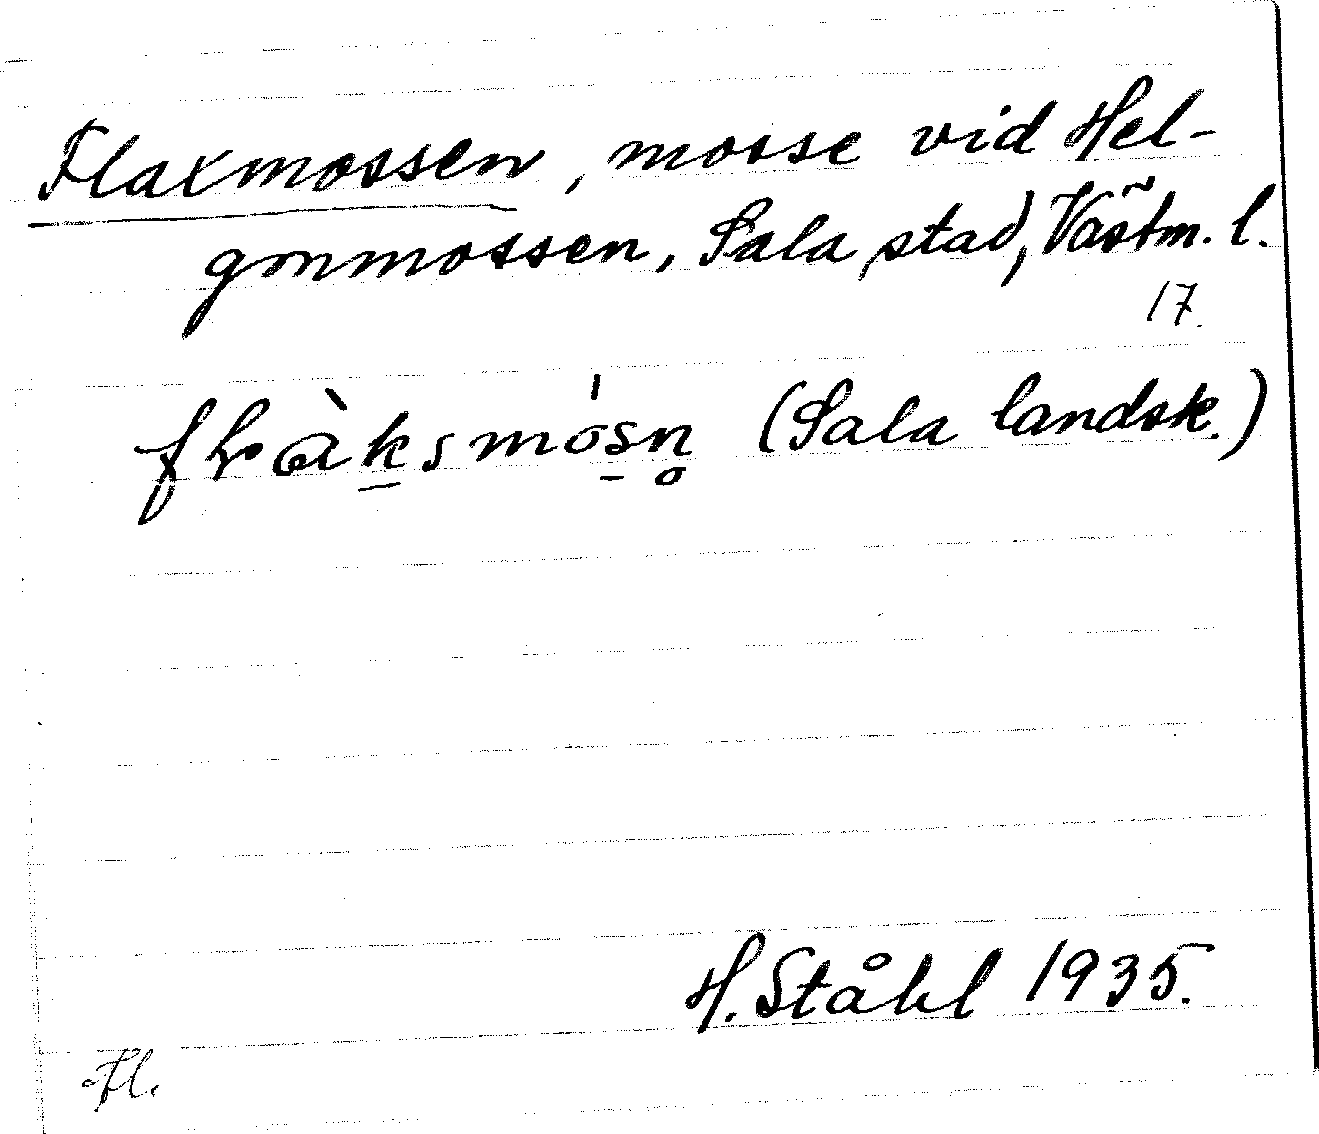 Flaxmossen, mosse vid Hel-
gonmossen, Sala stad, Västm. l.
17.
(Sala landsk.)
H. Ståhl 1935.
Fl.